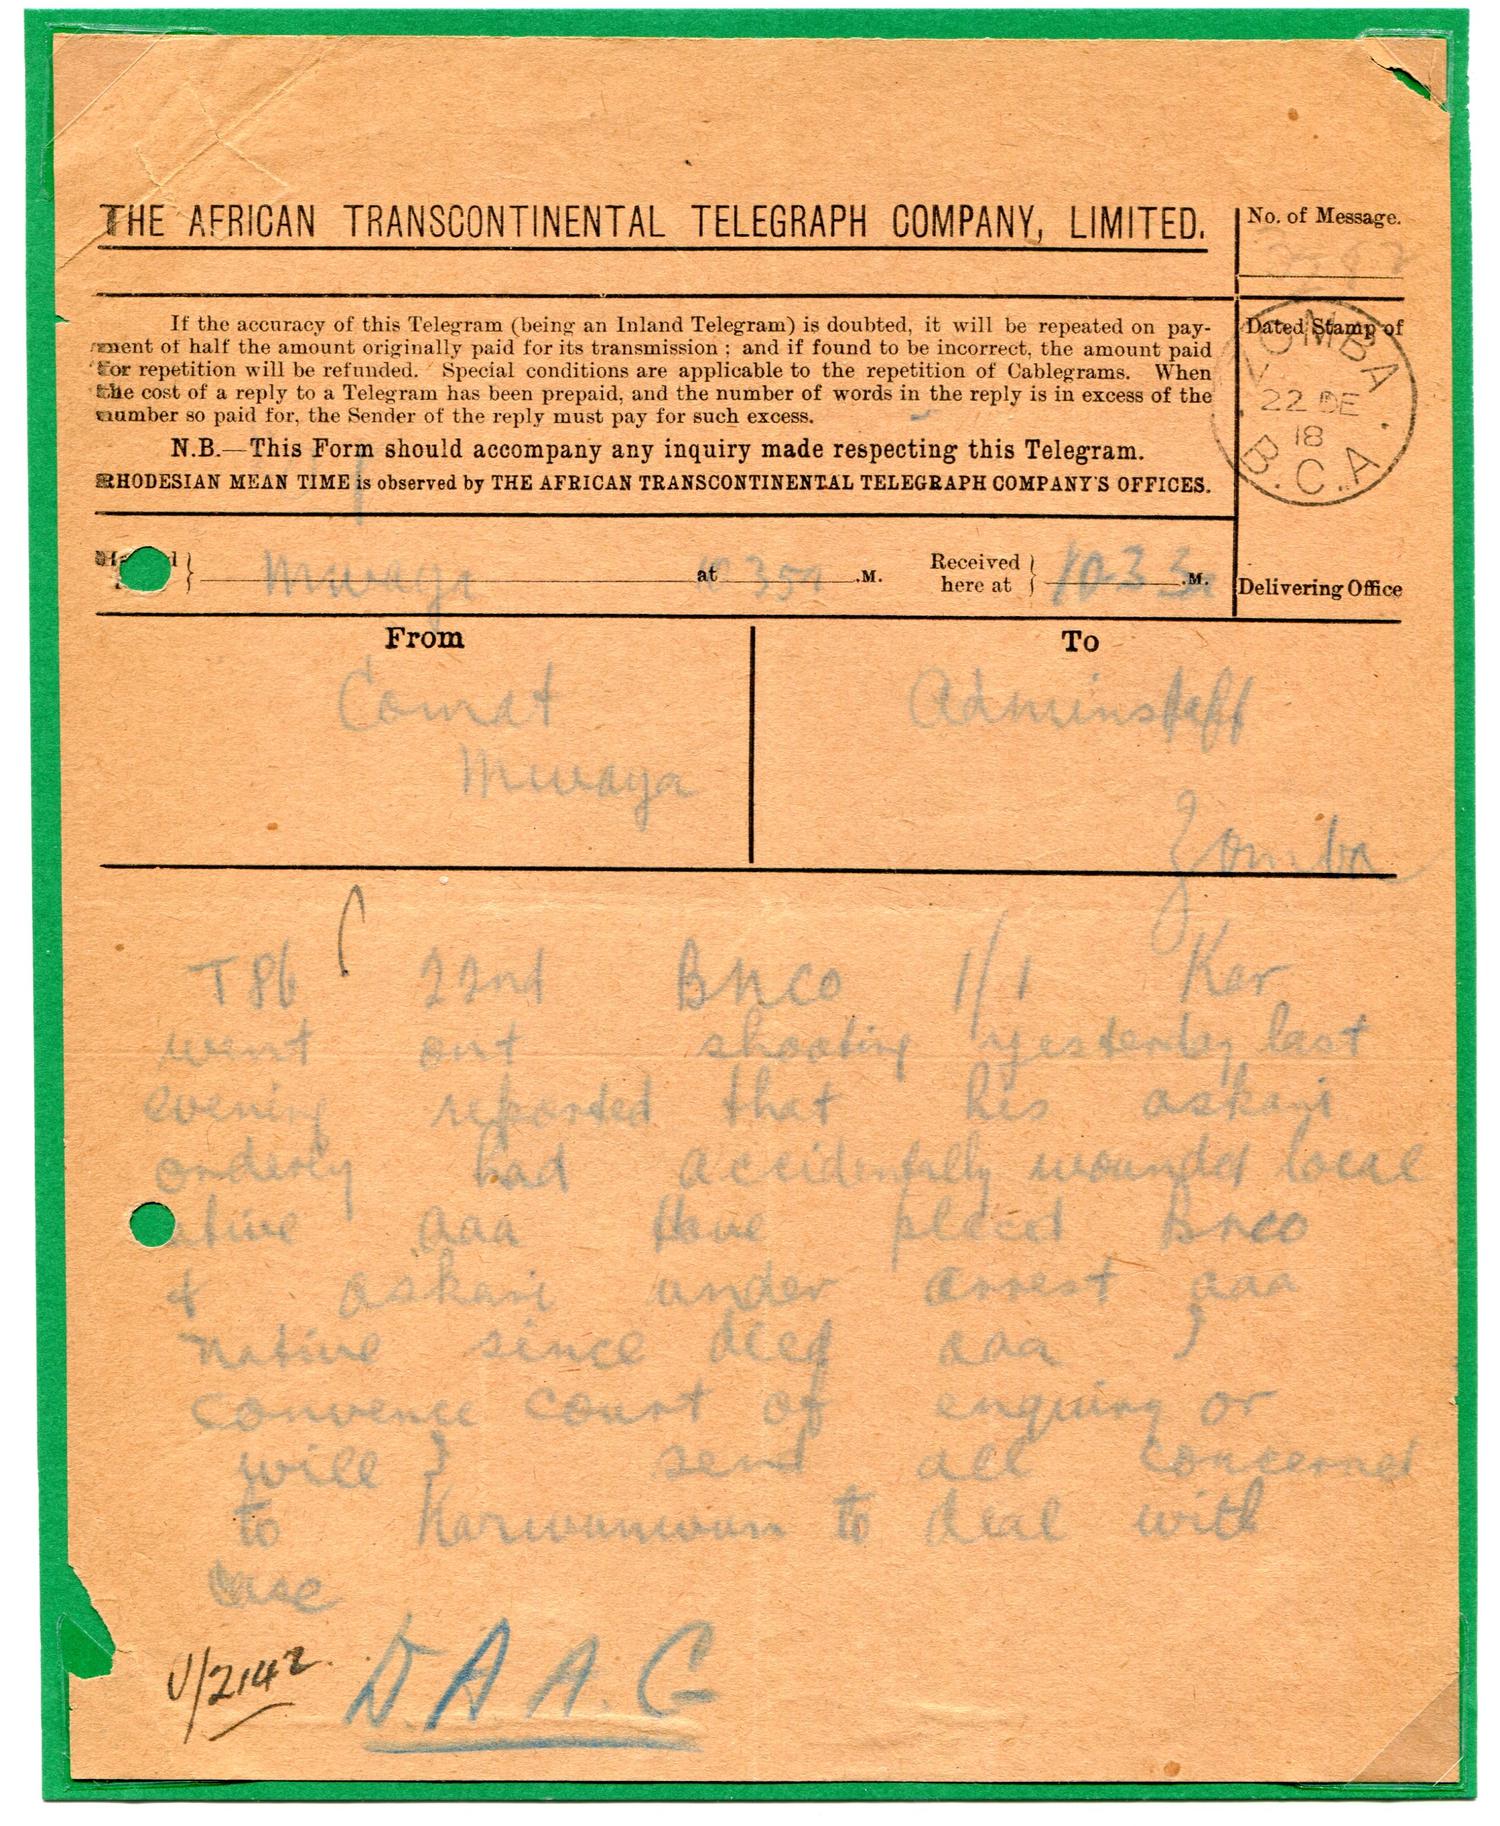 THE AFRICAN TRANSCONTINENTAL TELEGRAPH COMPANY, LIMITED.
No. of Message.
If the accuracy of this Telegram (being an Inland Telegram) is doubted, it will be repeated on pay-
ment of half the amount originally paid for its transmission ; and if found to be incorrect, the amount paid
for repetition will be refunded. Special conditions are applicable to the repetition of Cablegrams. When
the cost of a reply to a Telegram has been prepaid, and the number of words in the reply is in excess of the
number so paid for, the Sender of the reply must pay for such excess.
N.B.—This Form should accompany any inquiry made respecting this Telegram.
RHODESIAN MEAN TIME is observed by THE AFRICAN TRANSCONTINENTAL TELEGRAPH COMPANY'S OFFICES.
Dated Stamp of
ZOMBA
22 DE
18
B.C.A.
Delivering Office
Mwaya at .M. Received here at .M.
From
To
Comdt
Mwaya
Adminstaff
Zomba
T86 22nd BNCO 1/1 Kar
went out shooting yesterday last
evening reported that his askari
orderly had accidentally wounded local
native aaa Have placed BNCO
& askari under arrest aaa
native since died aaa }
convence court of enquiry or
will } send all concerned
to to deal with
case
2142
D.A.A.G